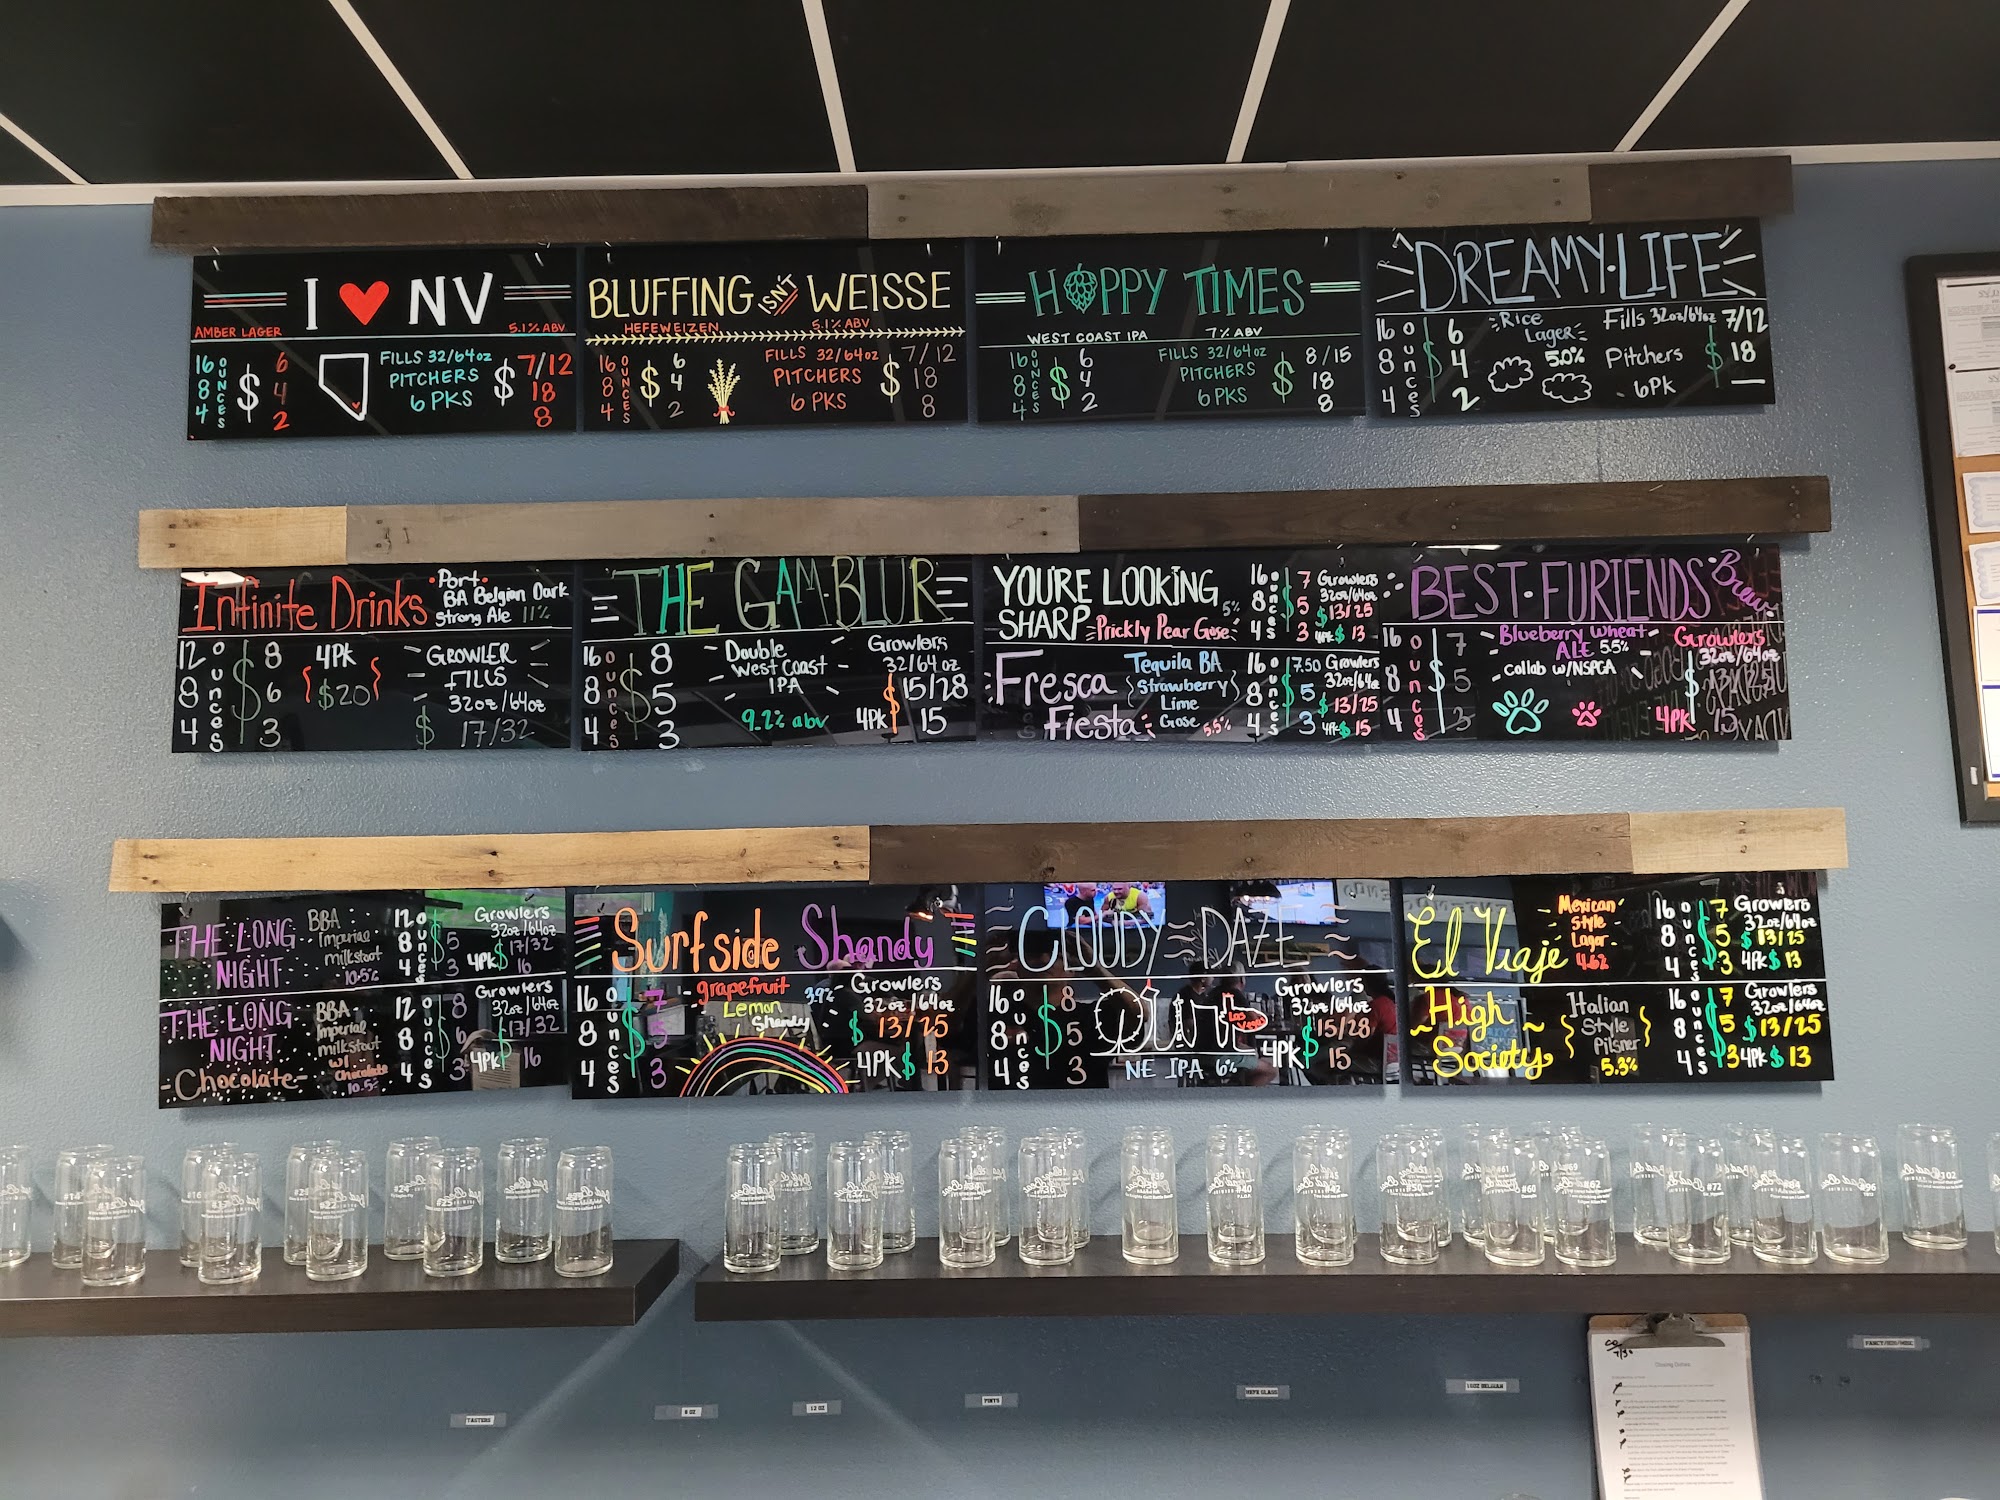 I ♥ NV
AMBER LAGER 5.1% ABV
16 OUNCES $ 6
8 4
4 2
FILLS 32/64oz $ 7/12
PITCHERS 18
6 PKS 8
BLUFFING ISN'T WEISSE
HEFEWEIZEN 5.1% ABV
16 OUNCES $ 6
8 4
4 2
FILLS 32/64oz $ 7/12
PITCHERS 18
6 PKS 8
HOPPY TIMES
WEST COAST IPA 7% ABV
16 OUNCES $ 6
8 4
4 2
FILLS 32/64oz $ 8/15
PITCHERS 18
6 PKS 8
DREAMY·LIFE
16 ounces $ 6
8 4
4 2
Rice
Lager
5.0%
Fills 32oz/64oz $ 7/12
Pitchers 18
6PK —
Infinite Drinks
Port
BA Belgian Dark
Strong Ale 11%
12 ounces $ 8
8 6
4 3
4PK
$20
GROWLER
FILLS
32oz/64oz
$ 17/32
THE GAM·BLUR
16 ounces $ 8
8 5
4 3
Double
West Coast
IPA
9.2% abv
Growlers
32/64 oz
$ 15/28
4PK 15
YOU'RE LOOKING
SHARP 5%
Prickly Pear Gose
16 ounces $ 7
8 5
4 3
Growlers
32oz/64oz
$13/25
4PK $ 13
Fresca
Fiesta
Tequila BA
Strawberry
Lime
Gose 5.5%
16 ounces $ 7.50
8 5
4 3
Growlers
32oz/64oz
$13/25
4PK $ 15
BEST·FURIENDS Brew
16 ounces $ 7
8 5
4 3
Blueberry Wheat
ALE 5.5%
collab w/NSPCA
Growlers
32oz/64oz
$ 13/25
4PK 15
THE LONG
NIGHT
BBA
Imperial
milkstout
10.5%
12 ounces $
8 5
4 3
Growlers
32oz/64oz
$ 17/32
4PK 16
THE LONG
NIGHT
-Chocolate-
BBA
Imperial
milkstout
w/
Chocolate
10.5%
12 ounces $ 8
8 6
4 3
Growlers
32oz/64oz
$ 17/32
4PK 16
Surfside Shandy
16 ounces $ 7
8 5
4 3
grapefruit
Lemon
Shandy
3.9%
Growlers
32oz/64oz
$ 13/25
4PK $ 13
CLOUDY DAZE
16 ounces $ 8
8 5
4 3
Las Vegas
NE IPA 6%
Growlers
32oz/64oz
$15/28
4PK 15
El Viaje
Mexican
Style
Lager
4.6%
16 ounces $ 7
8 5
4 3
Growlers
32oz/64oz
$ 13/25
4PK $ 13
High
Society
Italian
Style
Pilsner
5.3%
16 ounces $ 7
8 5
4 3
Growlers
32oz/64oz
$ 13/25
4PK $ 13
#14
#22
#24
#25
#40
#42
#60
#61
#62
#72
#96
TASTERS
8 OZ
12 OZ
PINTS
HEFE GLASS
Closing Duties
7/30